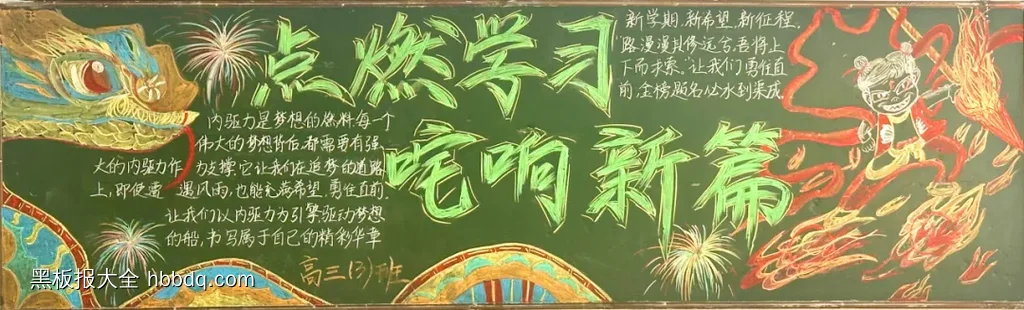 点燃学习
咤响新篇
新学期.新希望.新征程.
路漫漫其修远兮,吾将上
下而求索.让我们勇往直
前,金榜题名必水到渠成.
内驱力是梦想的燃料每一个
伟大的梦想背后,都需要有强
大的内驱力作为支撑,它让我们在追梦的道路
上,即使遭遇风雨,也能充满希望,勇往直前
让我们以内驱力为引擎驱动梦想
的船,书写属于自己的精彩华章
高三(3)班
黑板报大全 hbbdq.com